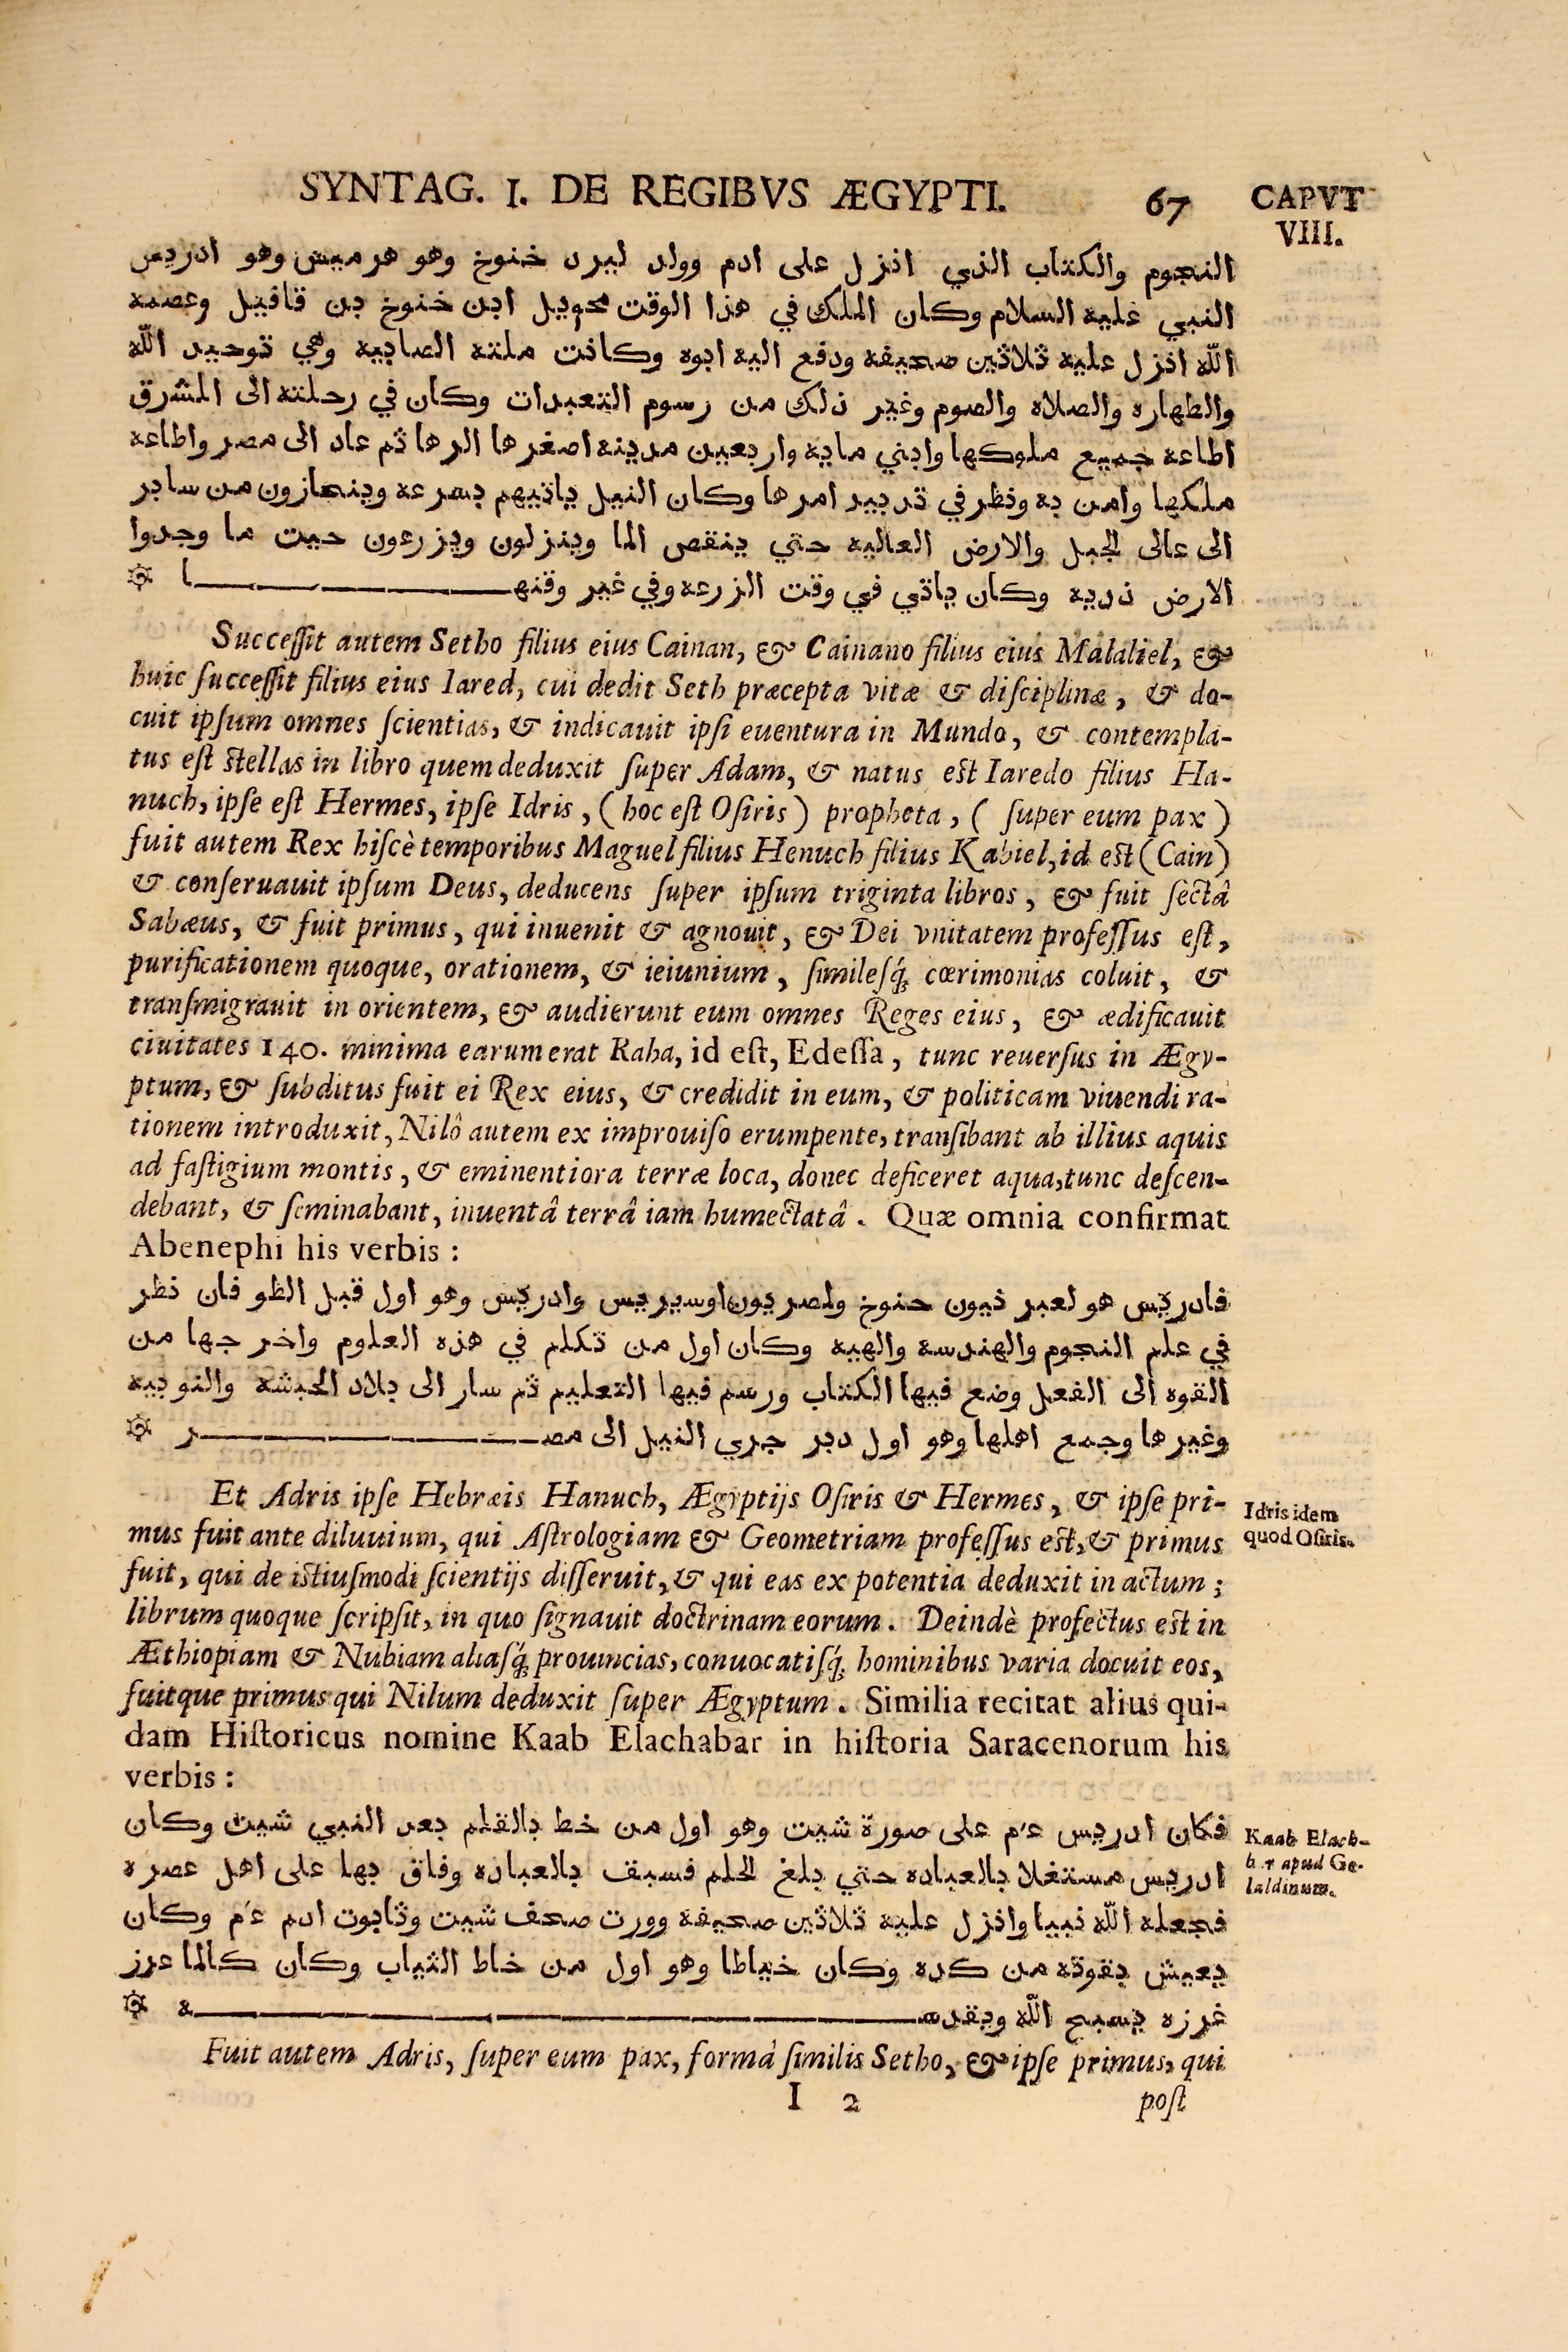 SYNTAG. I. DE REGIBVS ÆGYPTI. 67
CAPVT
VIII.
النجوم والكتاب الذي انزل على ادم وولد ليرد خنوخ وهو هرميس وهو ادريس
النبي عليه السلام وكان الملك في هذا الوقت محويل ابن خنوخ بن قابيل وعصمه
اللّه انزل عليه ثلاثين صحيفه ودفع اليه ابوه وكانت ملته الصابيه وهي توحيد اللّه
والطهاره والصلاه والصوم وغير ذلك من رسوم التعبدات وكان في رحلته الى المشرق
اطاعه جميع ملوكها وابني مايه واربعين مدينه اصغرها الرها ثم عاد الى مصر واطاعه
ملكها وامن به ونظر في تدبير امرها وكان النيل ياتيهم بسرعه وينحازون من ساير
الى عالى الجبل والارض العاليه حتي ينقص الما وينزلون ويزرعون حيت ما وجدوا
الارض نديه وكان ياتي في وقت الزرعه وفي غير وقتهــــــــا ۞
Succeſſit autem Setho filius eius Cainan, & Cainano filius eius Malaliel, &
huic ſucceſſit filius eius Iared, cui dedit Seth præcepta vitæ & diſciplinæ, & do-
cuit ipſum omnes ſcientias, & indicauit ipſi euentura in Mundo, & contempla-
tus eſt ſtellas in libro quem deduxit ſuper Adam, & natus eſt Iaredo filius Ha-
nuch, ipſe eſt Hermes, ipſe Idris, (hoc eſt Oſiris) propheta, (ſuper eum pax)
fuit autem Rex hiſcè temporibus Maguel filius Henuch filius Kabiel, id eſt (Cain)
& conſeruauit ipſum Deus, deducens ſuper ipſum triginta libros, & fuit ſectâ
Sabæus, & fuit primus, qui inuenit & agnouit, & Dei vnitatem profeſſus eſt,
purificationem quoque, orationem, & ieiunium, ſimileſq́; cœrimonias coluit, &
tranſmigrauit in orientem, & audierunt eum omnes Reges eius, & ædificauit
ciuitates 140. minima earum erat Raha, id eſt, Edeſſa, tunc reuerſus in Ægy-
ptum, & ſubditus fuit ei Rex eius, & credidit in eum, & politicam viuendi ra-
tionem introduxit, Nilô autem ex improuiſo erumpente, tranſibant ab illius aquis
ad faſtigium montis, & eminentiora terræ loca, donec deficeret aqua, tunc deſcen-
debant, & ſeminabant, inuentâ terrâ iam humectatâ. Quæ omnia confirmat
Abenephi his verbis :
فادريس هو لعبر نيون حنوخ ولمصريون اوسيريس وادريس وهو اول قبل الطو فان نظر
في علم النجوم والهندسه والهيه وكان اول من تكلم في هذه العلوم واخرجها من
القوه الى الفعل وضع فيها الكتاب ورسم فيها التعليم ثم سار الى بلاد الحبشه والنوبيه
وغيرها وجمع اهلها وهو اول دبر جري النيل الى مصــــــــر ۞
Et Adris ipſe Hebræis Hanuch, Ægyptijs Oſiris & Hermes, & ipſe pri-
mus fuit ante diluuium, qui Aſtrologiam & Geometriam profeſſus eſt, & primus
fuit, qui de iſtiuſmodi ſcientijs diſſeruit, & qui eas ex potentia deduxit in actum;
librum quoque ſcripſit, in quo ſignauit doctrinam eorum. Deindè profectus eſt in
Æthiopiam & Nubiam aliaſq́; prouincias, conuocatiſq́; hominibus varia docuit eos,
fuitque primus qui Nilum deduxit ſuper Ægyptum. Similia recitat alius qui-
dam Hiſtoricus nomine Kaab Elachabar in hiſtoria Saracenorum his
verbis :
Idris idem
quod Oſiris.
فكان ادريس ع م على صورة شيت وهو اول من خط بالقلم بعد النبي شيت وكان
ادريس مستغلا بالعباده حتي بلغ الحلم فسبف بالعباده وفاق بها على اهل عصره
فجعله اللّه نبيا وانزل عليه ثلاثين صحيفه وورت صحف شيت وتابوت ادم ع م وكان
يعيش بقوته من كده وكان خياطا وهو اول من خاط الثياب وكان كالما عرز
غرزه يسبح اللّه ويقدســــــــه ۞
Kaab Elach-
b.r apud Ge-
laldinum.
Fuit autem Adris, ſuper eum pax, formâ ſimilis Setho, & ipſe primus, qui
I 2
poſt